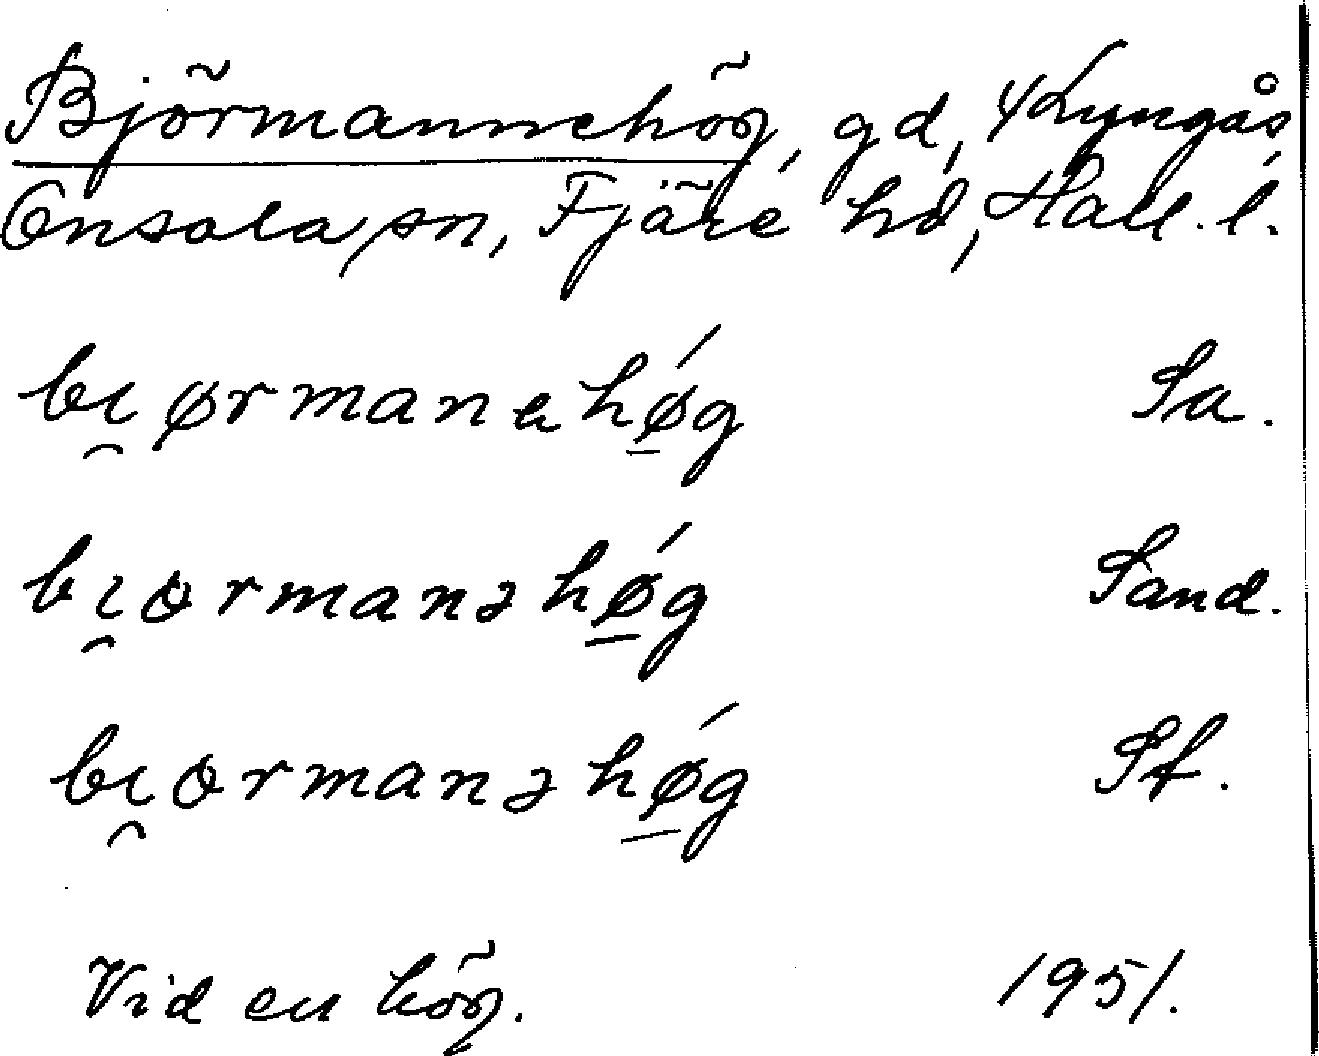 Björmannehög, gd, 4 Lyngås,
Onsala sn, Fjäre hd, Hall. l.
bı̯ørmanahǿ̱g Sa.
bı̯ormanəhǿ̱g Sand.
bı̯ormanəhǿ̱g Sf.
Vid en hög. 1951.